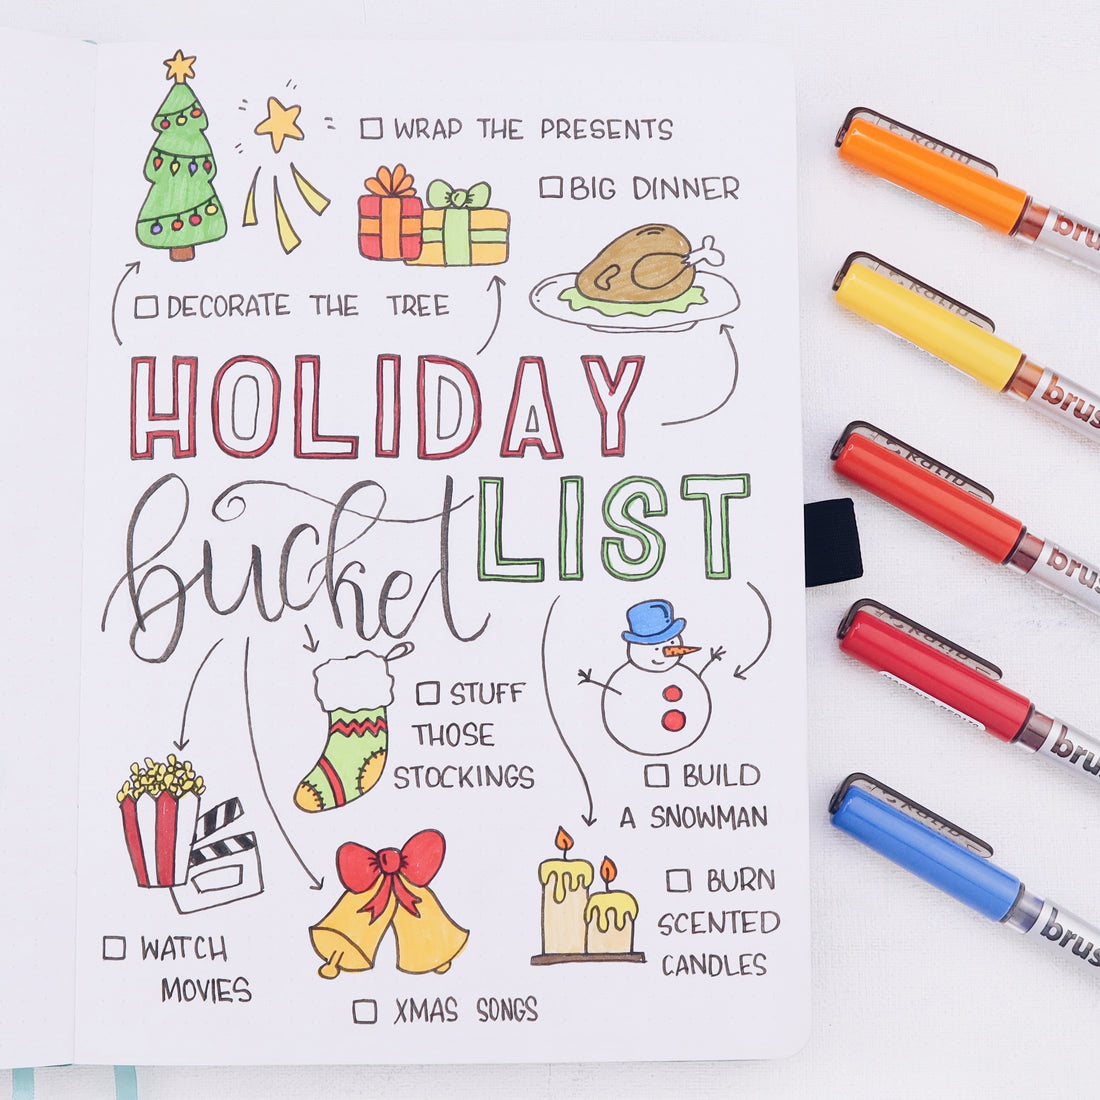 WRAP THE PRESENTS
BIG DINNER
DECORATE THE TREE
HOLIDAY
bucket LIST
STUFF
THOSE
STOCKINGS
BUILD
A SNOWMAN
BURN
SCENTED
CANDLES
WATCH
MOVIES
XMAS SONGS
bru
brus
brus
brus
brus